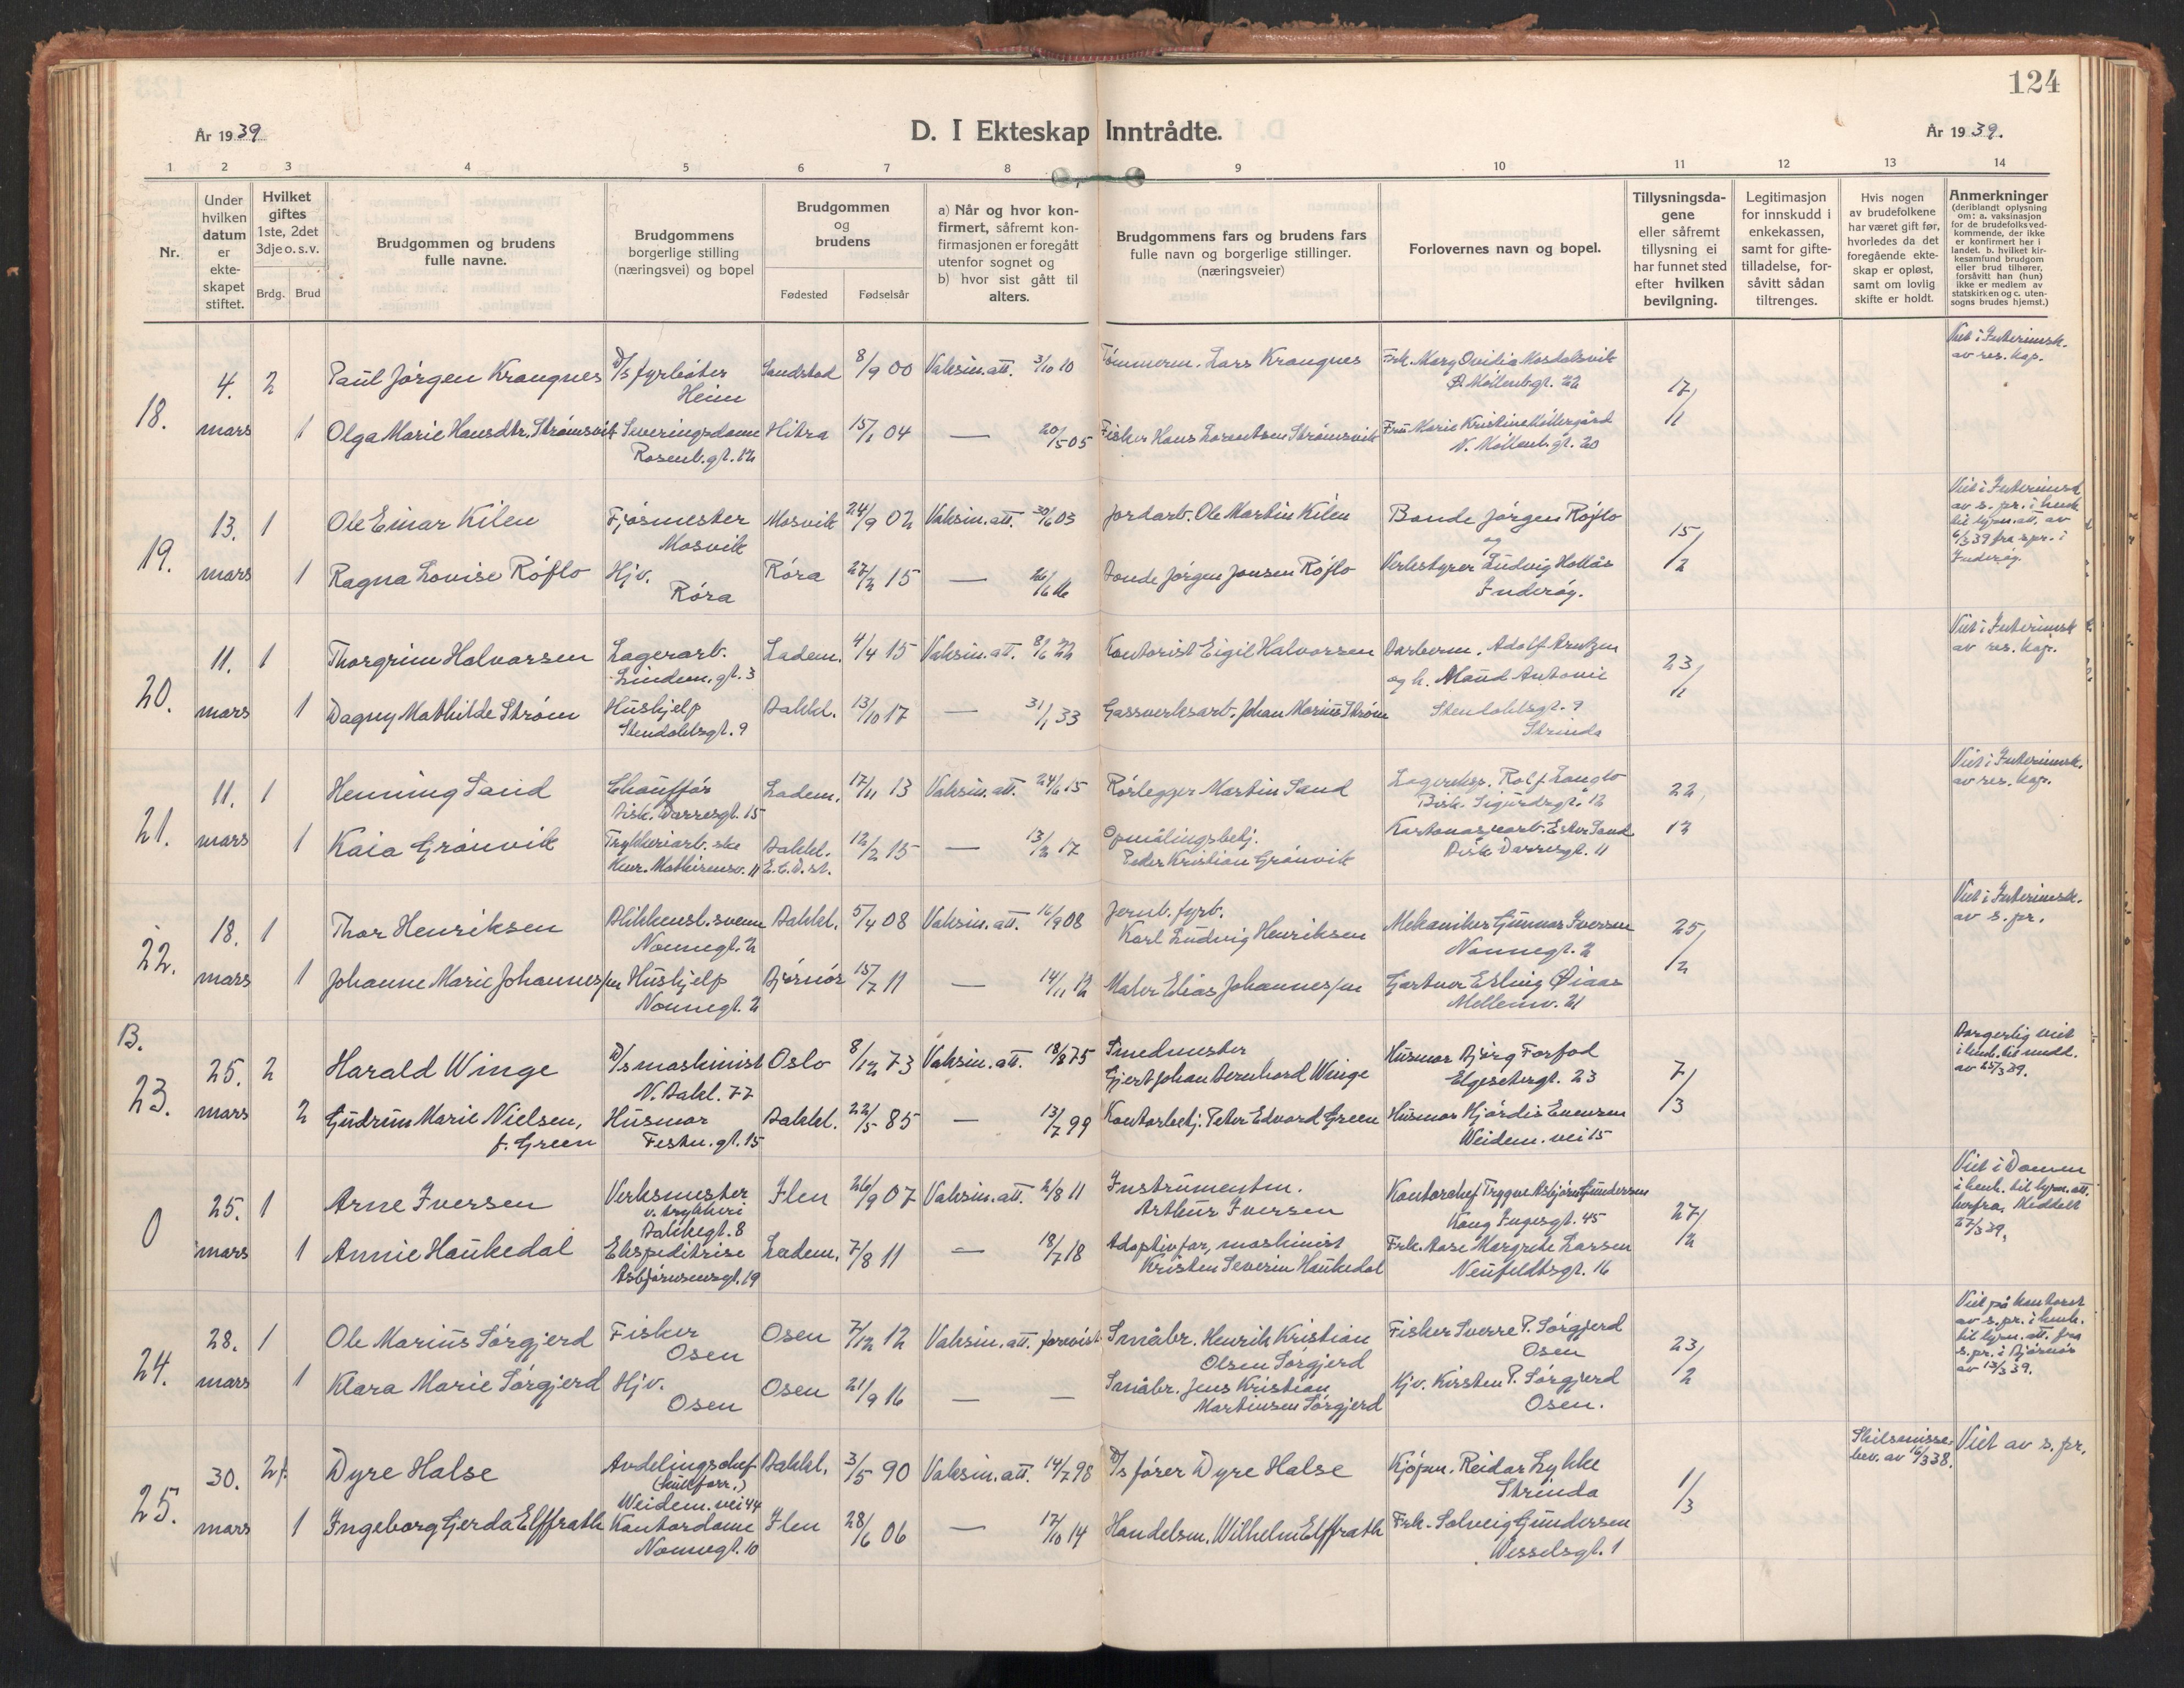 124
År 1939
D. I Ekteskap Inntrådte.
År 1939.
1 2 3 4 5 6 7 8 9 10 11 12 13 14
Nr.
Under hvilken datum er ekteskapet stiftet.
Hvilket giftes 1ste, 2det 3dje o. s. v.
Brdg. Brud
Brudgommen og brudens fulle navne.
Brudgommens borgerlige stilling (næringsvei) og bopel
Brudgommen og brudens
Fødested
Fødselsår
a) Når og hvor konfirmert, såfremt konfirmasjonen er foregått utenfor sognet og
b) hvor sist gått til alters.
Brudgommens fars og brudens fars fulle navn og borgerlige stillinger. (næringsveier)
Forlovernes navn og bopel.
Tillysningsdagene eller såfremt tillysning ei har funnet sted efter hvilken bevilgning.
Legitimasjon for innskudd i enkekassen, samt for giftetilladelse, forsåvitt sådan tiltrenges.
Hvis nogen av brudefolkene har været gift før, hvorledes da det foregående ekteskap er opløst, samt om lovlig skifte er holdt.
Anmerkninger (deriblandt oplysning om: a. vaksinasjon for de brudefolksvedkommende, der ikke er konfirmert her i landet. b. hvilket kirkesamfund brudgom eller brud tilhører, forsåvitt han (hun) ikke er medlem av statskirken og c. utensogns brudes hjemst.)
18. 4. mars 2 Paul Jørgen Krangnes D/s fyrbøter Heim Sandstad 8/9 00 Vaksin.att. 3/10 10 Tømmerm. Lars Krangnes Frk. Mary Ovidia Mosdalsvik Ø. Møllenb.gt. 22 17/11 Viet i Interimsk. av res. kap.
1 Olga Marie Hansdtr. Strømsvik Serveringsdame Rosenb.gt. 12 Hitra 15/1 04 — 20/5 05 Fisker Hans Lorentsen Strømsvik Fru Marie Kristine Møllegård N. Møllenb.gt. 20
19. 13. mars 1 Ole Einar Kilen Fjøsmester Mosvik Mosvik 24/9 02 Vaksin.att. 30/6 03 Jordarb. Ole Martin Kilen Bonde Jørgen Røflo og 15/2 Viet i Interimsk av s. pr. i henh. til lysn.att. av 6/3 39 fra s.pr. i Inderøy.
1 Ragna Lovise Røflo Hjv. Røra Røra 27/3 15 — 26/6 16 Bonde Jørgen Jonsen Røflo Verkstyrer Ludvig Hollås Inderøy.
20. 11. mars 1 Thorgrim Halvorsen Lagerarb. Lindem.gt. 3 Ladem. 4/4 15 Vaksin.att. 8/6 22 Kontorist Eigil Halvorsen Barberm. Adolf Arntzen og h. Maud Antonie Stendahlsgt. 9 Strinda 23/11 Viet i Interimsk av res. kap.
1 Dagny Mathilde Strøm Hushjelp Stendahlsgt. 9 Bakkl. 13/10 17 — 31/1 33 Gassverksarb. Johan Marius Strøm
21. 11. mars 1 Henning Sand Chauffør Bisk. Darresgt. 15 Ladem. 17/11 13 Vaksin.att. 24/6 15 Rørlegger Martin Sand Lagereksp. Rolf Langlo Bisk. Sigurdsgt. 12 22/12 Viet i Interimsk. av res. kap.
1 Kaia Grønvik Trykkeriarb.ske Knr. Mathisensv. 11 Bakkl. E.C.D.st. 12/2 15 — 13/12 17 Opmålingsbetj. Peder Kristian Grønvik Kartonasjearb. Ester Sand Bisk Darresgt. 11
22. 18. mars 1 Thor Henriksen Blikkensl.svenn Nonnegt. 2 Bakkl. 5/4 08 Vaksin.att. 16/9 08 Jernb. fyrb. Karl Ludvig Henriksen Mekaniker Gunnar Iversen Nonnegt. 2 25/2 Viet i Interimsk. av s. pr.
1 Johanne Marie Johannessen Hushjelp Nonnegt. 2 Bjørnør 15/7 11 — 14/11 12 Maler Elias Johannessen Gartner Erling Øiaas Mellemv. 21
B.
23. 25. mars 2 Harald Winge D/s maskinist N. Bakl. 77 Oslo 8/12 73 Vaksin.att. 18/8 75 Smedmester Gjert Johan Bernhard Winge Husmor Bjørg Forfod Elgesetergt. 23 7/3 Borgerlig viet i henh. til medd. av 25/3 39.
2 Gudrun Marie Nielsen, f. Green Husmor Festn.gt. 15 Bakkl. 22/5 85 — 13/7 99 Kontorbetj. Peter Edvard Green Husmor Hjørdis Evensen Weidem.vei 15
0 25. mars 1 Arne Iversen Verksmester v. trykkeri Bakkegt. 8 Ilen 26/9 07 Vaksin.att. 2/8 11 Instrumentm. Arthur Iversen Kontorchef Trygve Asbjørn Gundersen Kong Ingesgt. 45 27/2 Viet i Domen i henh. til lysn.att. herfra. Meddelt 27/3 39.
1 Annie Haukedal Ekspeditrise Asbjørnsensgt. 19 Ladem. 7/8 11 — 18/7 18 Adoptivfar, maskinist Kristen Severin Haukedal Frk. Aase Margrethe Larsen Neufeldtsgt. 16
24. 28. mars 1 Ole Marius Sørgjerd Fisker Osen Osen 7/12 12 Vaksin.att. forevist Småbr. Henrik Kristian Olsen Sørgjerd Fisker Sverre P. Sørgjerd Osen 23/2 Viet på kontoret av s. pr. i henh. til lysn.att. fra s. pr. i Bjørnør av 13/3 39.
1 Klara Marie Sørgjerd Hjv. Osen Osen 21/9 16 — — Småbr. Jens Kristian Martinsen Sørgjerd Hjv. Kirsten P. Sørgjerd Osen.
25. 30. mars 2 f. Dyre Halse Avdelingschef Weidem.vei 44 Bakkl. 3/5 90 Vaksin.att. 14/7 98 D/s fører Dyre Halse Kjøpm. Reidar Lykke Strinda 1/3 Skilsmissebev. av 16/3 38. Viet av s. pr.
1 Ingeborg Gerda Elffrath Kontordame Nonnegt. 10 Ilen 28/6 06 — 17/10 14 Handelsm. Wilhelm Elffrath Frk. Solveig Gundersen Wesselsgt. 1